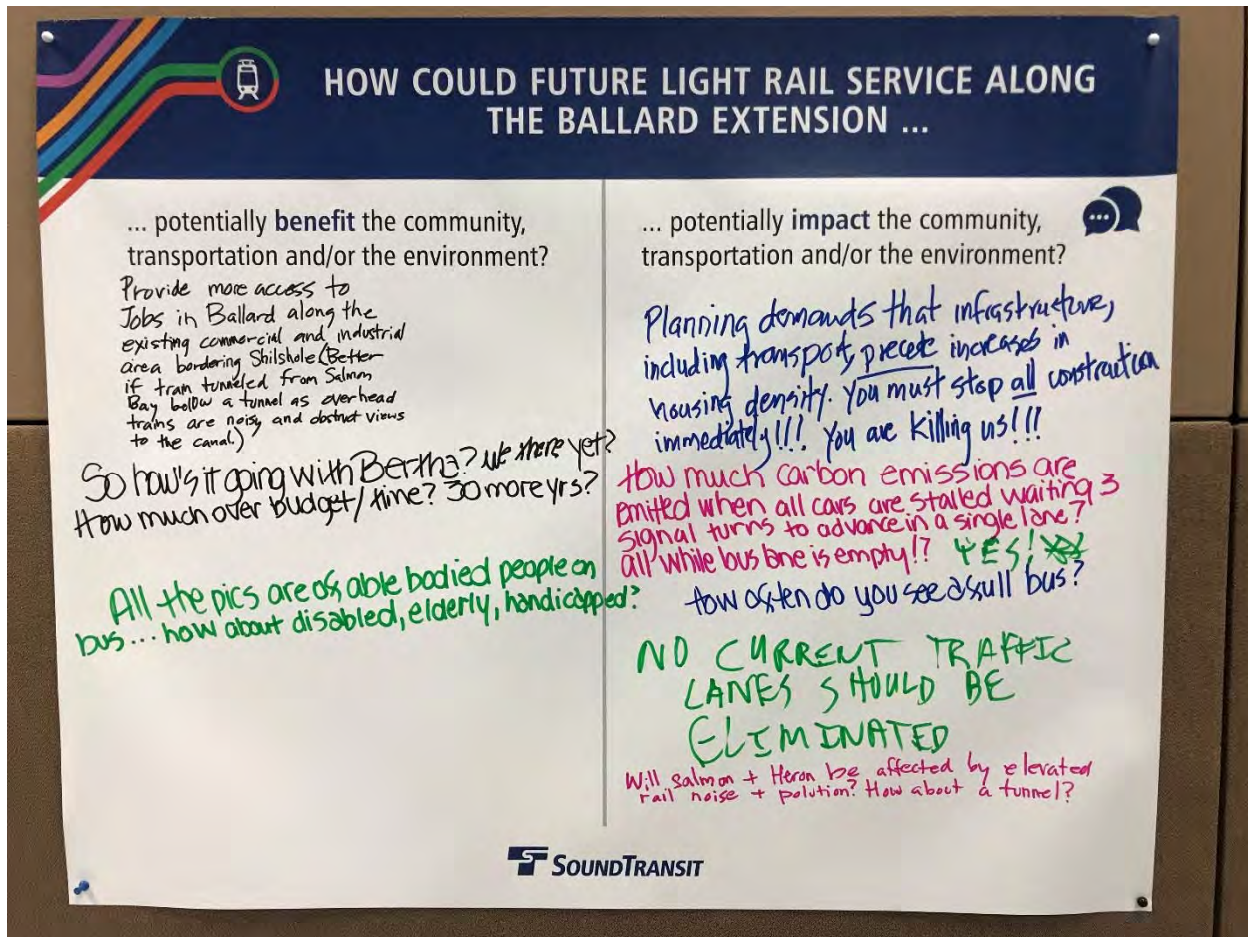 HOW COULD FUTURE LIGHT RAIL SERVICE ALONG
THE BALLARD EXTENSION ...
... potentially benefit the community,
transportation and/or the environment?
Provide more access to
Jobs in Ballard along the
existing commercial and industrial
area bordering Shilshole (Better
if train tunneled from Salmon
Bay bellow a tunnel as overhead
trains are noisy and obstruct views
to the canal.)
So how's it going with Bertha? We there yet?
How much over budget/time? 30 more yrs?
All the pics are of able bodied people on
bus... how about disabled, elderly, handicapped?
... potentially impact the community,
transportation and/or the environment?
Planning demands that infrastructure,
including transport, precede increases in
housing density. You must stop all construction
immediately!!! You are killing us!!!
How much carbon emissions are
emitted when all cars are stalled waiting 3
signal turns to advance in a single lane?
all while bus lane is empty!? YES!
How often do you see a full bus?
NO CURRENT TRAFFIC
LANES SHOULD BE
ELIMINATED
Will salmon + Heron be affected by elevated
rail noise + polution? How about a tunnel?
SOUNDTRANSIT